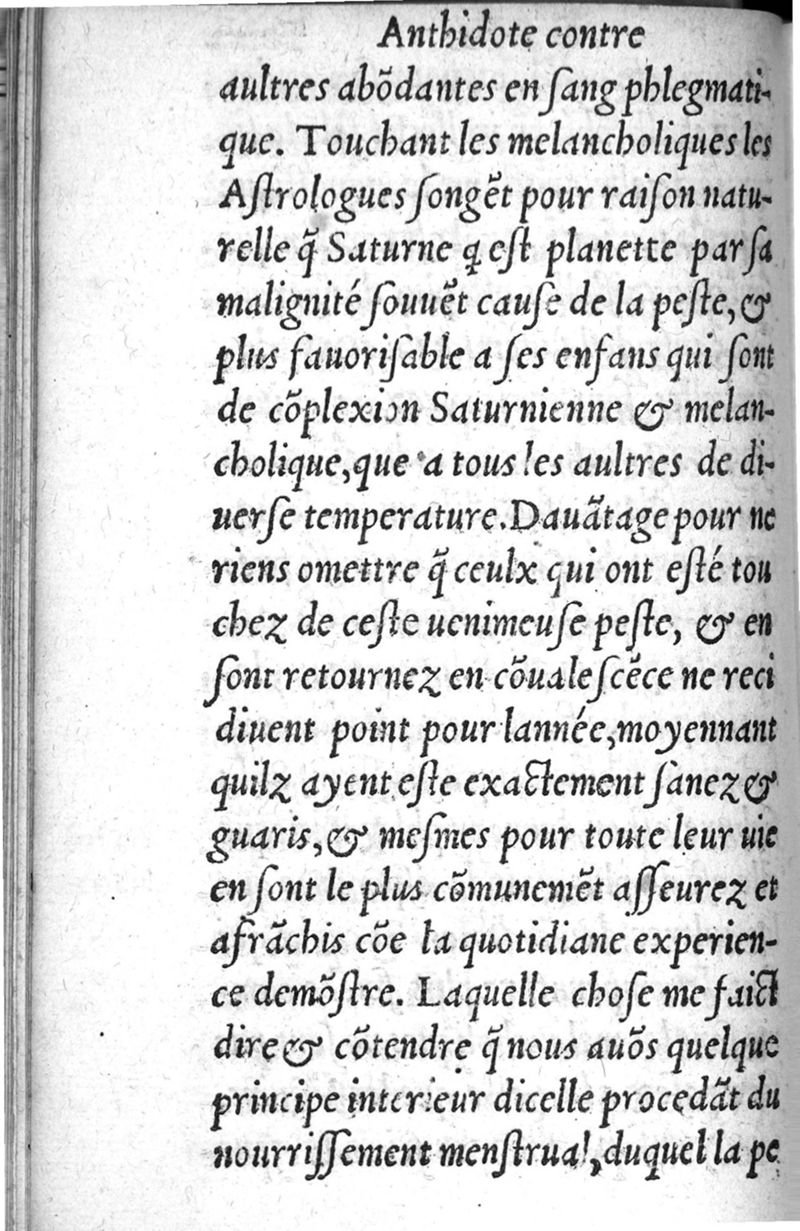 Anthidote contre
aultres abõdantes en ſang phlegmati-
que. Touchant les melancholiques les
Aſtrologues ſongẽt pour raiſon natu-
relle q̃ Saturne q eſt planette par ſa
malignité ſouuẽt cauſe de la peſte, &
plus fauoriſable a ſes enfans qui ſont
de cõplexion Saturnienne & melan-
cholique, que a tous les aultres de di-
uerſe temperature. Dauãtage pour ne
riens omettre q̃ ceulx qui ont eſté tou
chez de ceſte uenimeuſe peſte, & en
ſont retournez en cõualeſcẽce ne reci
diuent point pour lannée, moyennant
quilz ayent eſte exactement ſanez &
guaris, & meſmes pour toute leur uie
en ſont le plus cõmunemẽt aſſeurez et
afrãchis cõe la quotidiane experien-
ce demõſtre. Laquelle choſe me faict
dire & cõtendre q̃ nous auõs quelque
principe interieur dicelle procedãt du
nourriſſement menſtrual, duquel la pe